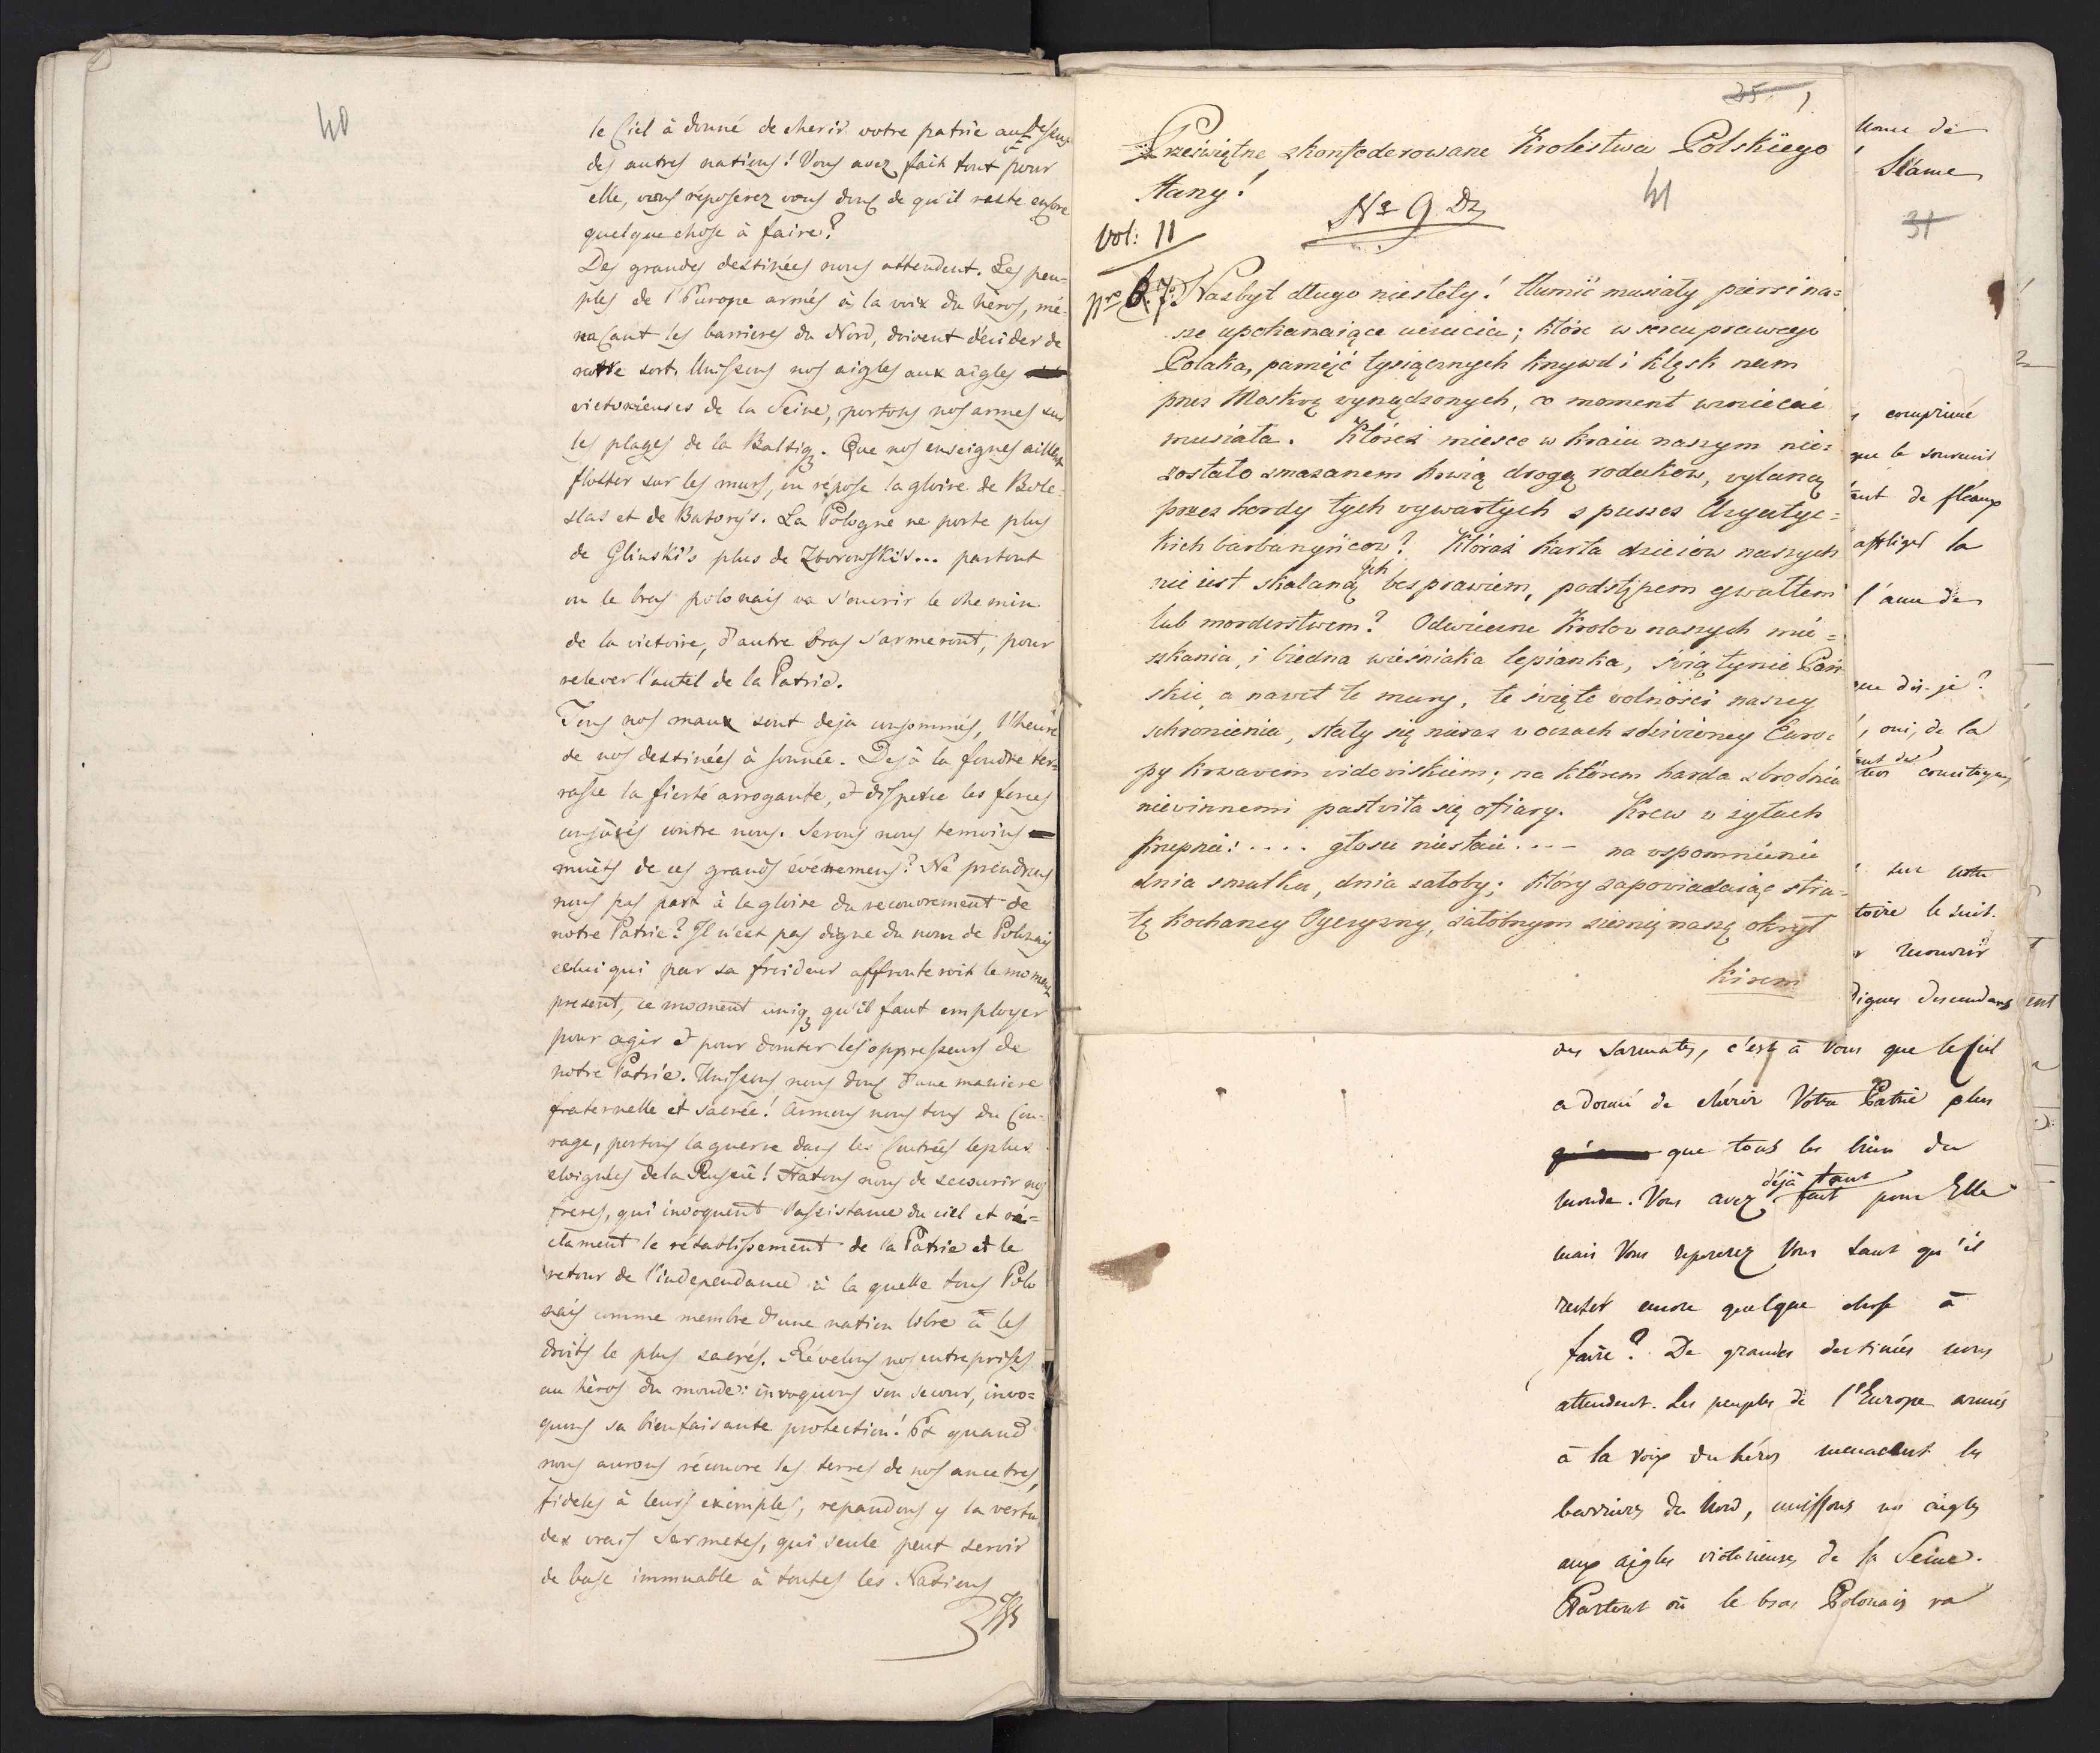 40
le Ciel à donné de cherir votre patrie au dessus
des autres nations! Vous avez fait tout pour
elle, vous reposerez vous donc de qu'il reste encore
quelque chose à faire?
Des grandes destinées nous attendent. Les peu-
ples de l'Europe armés à la voix du hèros, mé-
naçant les barrieres du Nord, doivent décider de
notre sort. Unissons nos aigles aux aigles
victorieuses de la Seine, portons nos armes sur
les plages de la Baltiq. Que nos enseignes aillent
flotter sur les murs, ou répose la gloire de Bole-
slas et de Batory's. La Pologne ne porte plus
de Glinski's plus de Zborowski's... partout
ou le bras polonais va s'ouvrir le chemin
de la victoire, d'autre bras s'armeront, pour
relever l'autel de la Patrie.
Tous nos maux sont deja consommés, l'heure
de nos destinées à sonnée. Dejà la foudre ter-
rasse la fierté arrogante, et disperse les forces
conjurés contre nous. Serons nous temoins
muets de ces grands événemens? Ne prendrons
nous pas part à la gloire du recouvrement de
notre Patrie? Il n'est pas digne du nom de Polonais
celui qui par sa froideur affronteroit le moment
present, ce moment uniq qu'il faut employer
pour agir et pour domter les oppresseurs de
notre Patrie. Unissons nous donc d'une maniere
fraternelle et sacrée! Armons nous tous du Cou-
rage, portons la guerre dans les Contrées le plus
eloignées de la Russie! Hatons nous de secourir nos
freres, qui invoquent l'assistance du ciel et ré-
clament le rétablissement de la Patrie et le
retour de l'independance à la quelle tous Polo
nais comme membre d'une nation libre à les
droits le plus sacrés. Révelons nos entreprises
au hèros du monde: invoquons son secour, invo-
quons sa bienfaisante protection! Et quand
nous aurons récouvre les terres de nos ancetres,
fideles à leurs exemples, repandons y la vertu
des vrais Sarmetes, qui seule peut servir
de base immuable à toutes les Nations
35. 1
Przeświętne skonfederowane Krolestwa Polskiego
Stany!
41
Nº 9 Dz
Vol: 11
Nro 6. 7. Nazbyt długo niestety! tłumić musiały piersi na-
sze upokarzaiące uczucia; które w sercu prawego
Polaka, pamięć tysiącznych krzywd i klęsk nam
przez Moskwę wyrządzonych, co moment wzniecać
musiała. Któreż miesce w kraiu naszym nie-
zostało zmazanem krwią drogą rodaków, wylaną
przez hordy tych wywartych z puszcz Azyatyc-
kich barbarzyńcow? Któraż karta dzieiów naszych
nie iest skalaną ich bezprawiem, podstępem gwałtem
lub morderstwem? Odwieczne Krolow naszych mie-
szkania, i biedna wieśniaka lepianka, świątynie Pań-
skie, a nawet te mury, te święte wolności naszey
schronienia, stały się nieraz w oczach zdziwioney Euro-
py krwawem widowiskiem; na którem harda zbrodnia
niewinnemi pastwiła się ofiary. Krew w żyłach
krzepnie: .... głosu niestaie .... na wspomnienie
dnia smutku, dnia żałoby; który zapowiadaiąc stra-
tę kochaney Oyczyzny, żałobnym ziemię naszą okrył
kirem
nome de
l'ame
31
comprimé
que le souvenir
tant de fléaux
affliger la
l'ame de
que dis-je?
oui, de la
concitoyens
sur votre
toire le suit.
mourir
dignes descendans
des Sarmates, c'est à Vous que le Ciel
a donné de chérir Votre Patrie plus
que tous les biens du
monde. Vous avez déjà tout fait pour Elle
mais Vous reposerez Vous tant qu'il
restet encore quelque chose à
faire? De grandes destinées nous
attendent. Les peuples de l'Europe armés
à la voix du héros menacent les
barrieres du Nord, unissons nos aigles
aux aigles victorieuses de la Seine.
Partout où le bras Polonais va